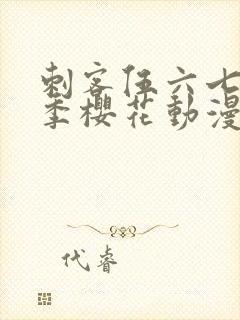 刺客伍六七
季櫻花動漫
代睿